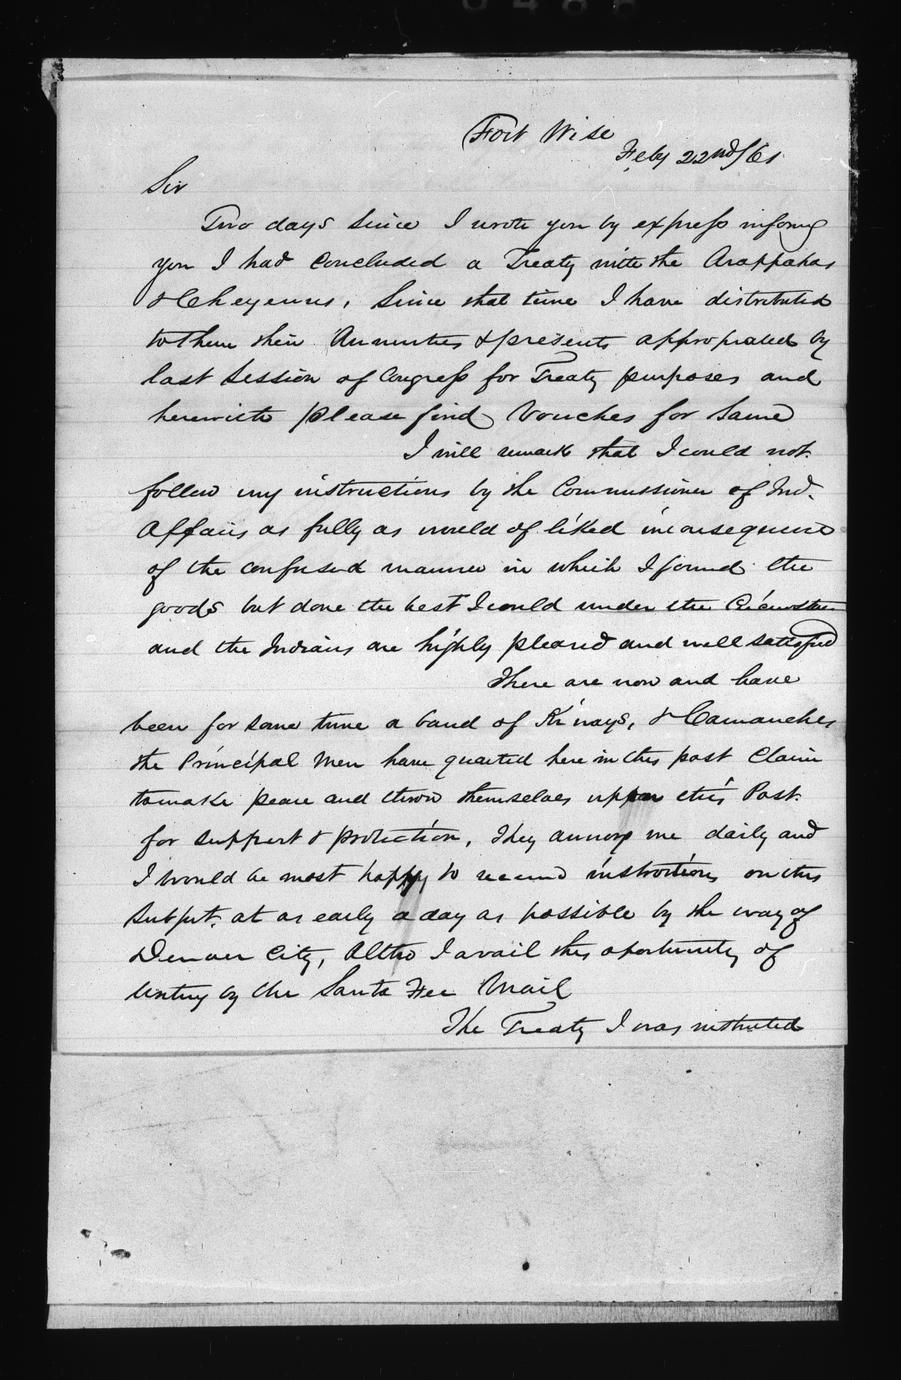 Fort Wise
Feby 22nd/61
Sir
Two days since I wrote you by express informg
you I had concluded a Treaty with the Arappahas
& Cheyennes, Since that time I have distributed
to them their Annuities & presents appropriated by
last Session of Congress for Treaty purposes and
herewith please find Vouches for Same
I will remark that I could not
follow my instructions by the Commissioner of Ind.
Affairs as fully as would of liked in consequence
of the confused manner in which I found the
goods but done the best I could under the
and the Indians are highly pleased and well satisfied
There are now and have
been for some time a band of Kiways, & Camanches
the Principal Men have quarted here in this post Claim
to make peace and throw themselves uppon this Post.
for support & protection, They annoy me daily and
I would be most happy to receive instructions on this
subject. at as early a day as possible by the way of
Denver City, Altho I avail this oportunity of
by the Santa Fee Mail
The Treaty I was instructed